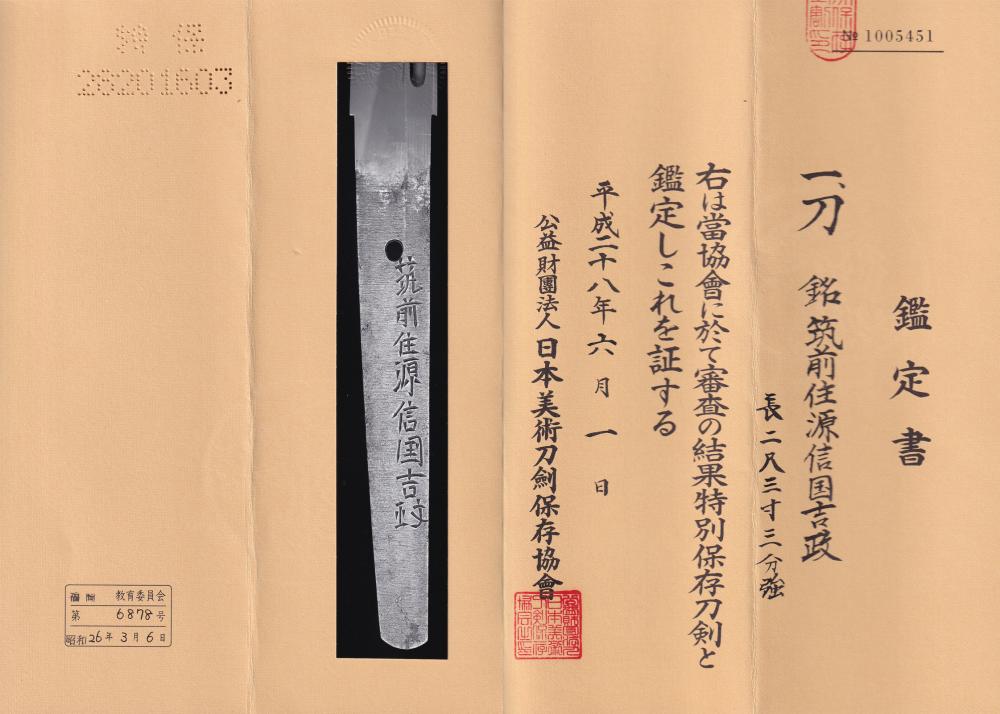 № 1005451
鑑定書
一、刀 銘 筑前住源信国吉政
長二尺三寸三分強
右は當協會に於て審査の結果特別保存刀剣と
鑑定しこれを証する
平成二十八年六月一日
公益財團法人 日本美術刀劍保存協會
筑前住源信国吉政
28201603
福岡 教育委員会
第 6878号
昭和26年3月6日